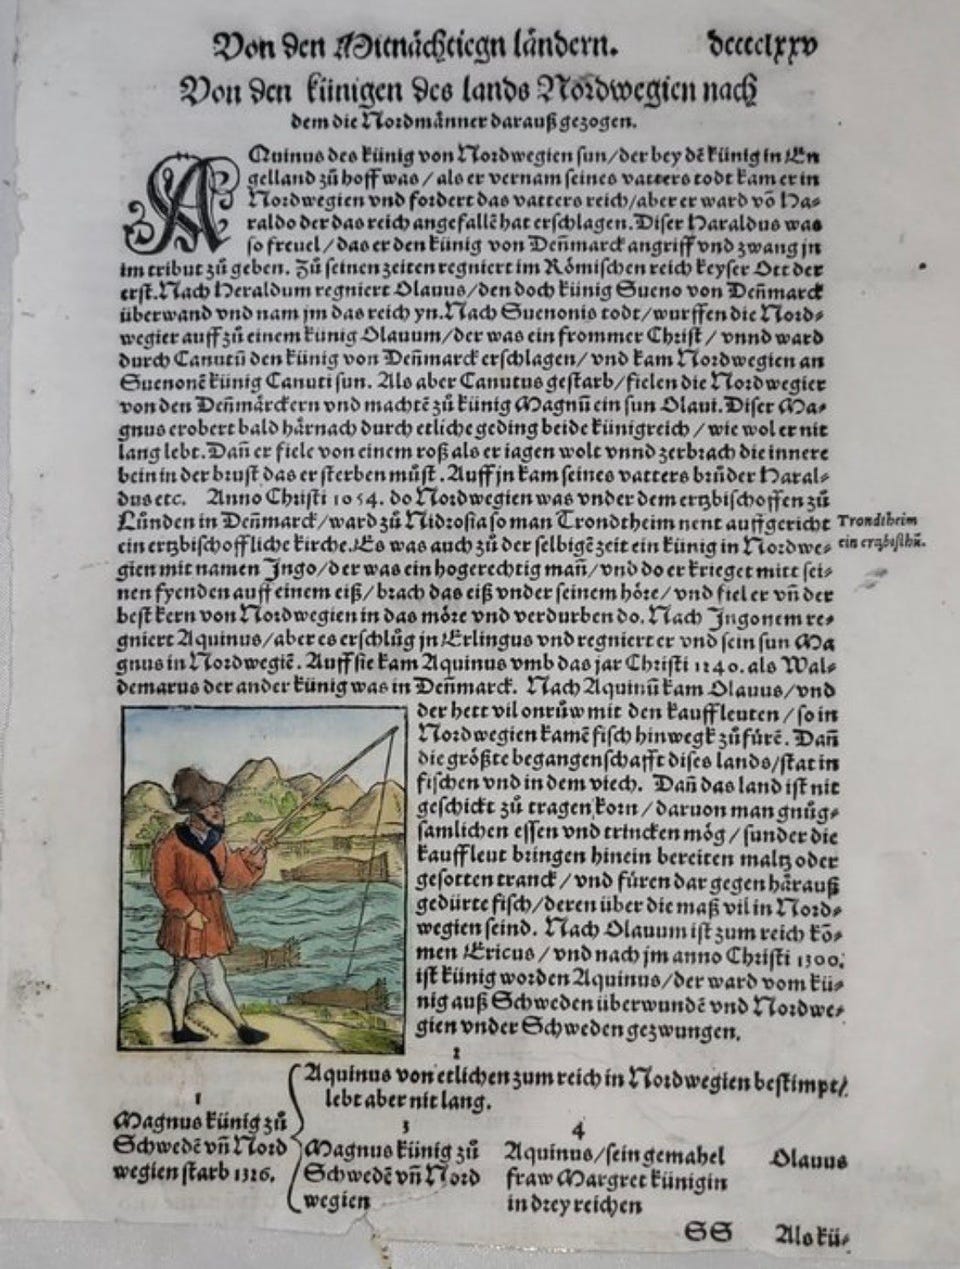 Von den Mitnächtiegn ländern. dcccclxxv
Von den künigen des lands Nordwegien nach
dem die Nordmänner darauß gezogen.
AQuinus des künig von Nordwegien sun/der bey dẽ künig in En
gelland zů hoff was/als er vernam seines vatters todt kam er in
Nordwegien vnd fordert das vatters reich/aber er ward võ Ha⸗
raldo der das reich angefallẽ hat erschlagen. Diser Haraldus was
so freuel/das er den künig von Deñmarck angriff vnd zwang jn
im tribut zů geben. Zů seinen zeiten regniert im Römischen reich keyser Ott der
erst. Nach Heraldum regniert Olauus/den doch künig Sueno von Deñmarck
überwand vnd nam jm das reich yn. Nach Suenonis todt/wurffen die Nord⸗
wegier auff zů einem künig Olauum/der was ein frommer Christ/vnnd ward
durch Canutũ den künig von Deñmarck erschlagen/vnd kam Nordwegien an
Suenonẽ künig Canuti sun. Als aber Canutus gestarb/fielen die Nordwegier
von den Deñmärckern vnd machtẽ zů künig Magnũ ein sun Olaui. Diser Ma⸗
gnus erobert bald härnach durch etliche geding beide künigreich/wie wol er nit
lang lebt. Dañ er fiele von einem roß als er iagen wolt vnnd zerbrach die innere
bein in der brust das er sterben můst. Auff jn kam seines vatters brůder Haral⸗
dus etc. Anno Christi 1054. do Nordwegien was vnder dem ertzbischoffen zů
Lůnden in Deñmarck/ward zů Nidrosia so man Trondtheim nent auffgericht
Trondtheim
ein ertzbisthũ.
ein ertzbischoffliche kirche. Es was auch zů der selbigẽ zeit ein künig in Nordwe⸗
gien mit namen Jngo/der was ein hogerechtig mañ/vnd do er krieget mitt sei⸗
nen fyenden auff einem eiß/brach das eiß vnder seinem höre/vnd fiel er vñ der
best kern von Nordwegien in das möre vnd verdurben do. Nach Jngonem re⸗
gniert Aquinus/aber es erschlůg jn Erlingus vnd regniert er vnd sein sun Ma
gnus in Nordwegiẽ. Auff sie kam Aquinus vmb das jar Christi 1240. als Wal⸗
demarus der ander künig was in Deñmarck. Nach Aquinũ kam Olauus/vnd
der hett vil onrůw mit den kauffleuten/so in
Nordwegien kamẽ fisch hinwegk zůfürẽ. Dañ
die größte begangenschafft dises lands/stat in
fischen vnd in dem viech. Dañ das land ist nit
geschickt zů tragen korn/daruon man gnůg⸗
samlichen essen vnd trincken mög/sunder die
kauffleut bringen hinein bereiten maltz oder
gesotten tranck/vnd füren dar gegen härauß
gedürte fisch/deren über die maß vil in Nord⸗
wegien seind. Nach Olauum ist zum reich kõ⸗
men Ericus/vnd nach jm anno Christi 1300.
ist künig worden Aquinus/der ward vom kü⸗
nig auß Schweden überwundẽ vnd Nordwe⸗
gien vnder Schweden gezwungen.
2
Aquinus von etlichen zum reich in Nordwegien bestimpt/
lebt aber nit lang.
1
Magnus künig zů
Schwedẽ vñ Nord
wegien starb 1326.
3
Magnus künig zů
Schwedẽ vñ Nord
wegien
4
Aquinus/sein gemahel
fraw Margret künigin
in drey reichen
Olauus
SS Als kü⸗